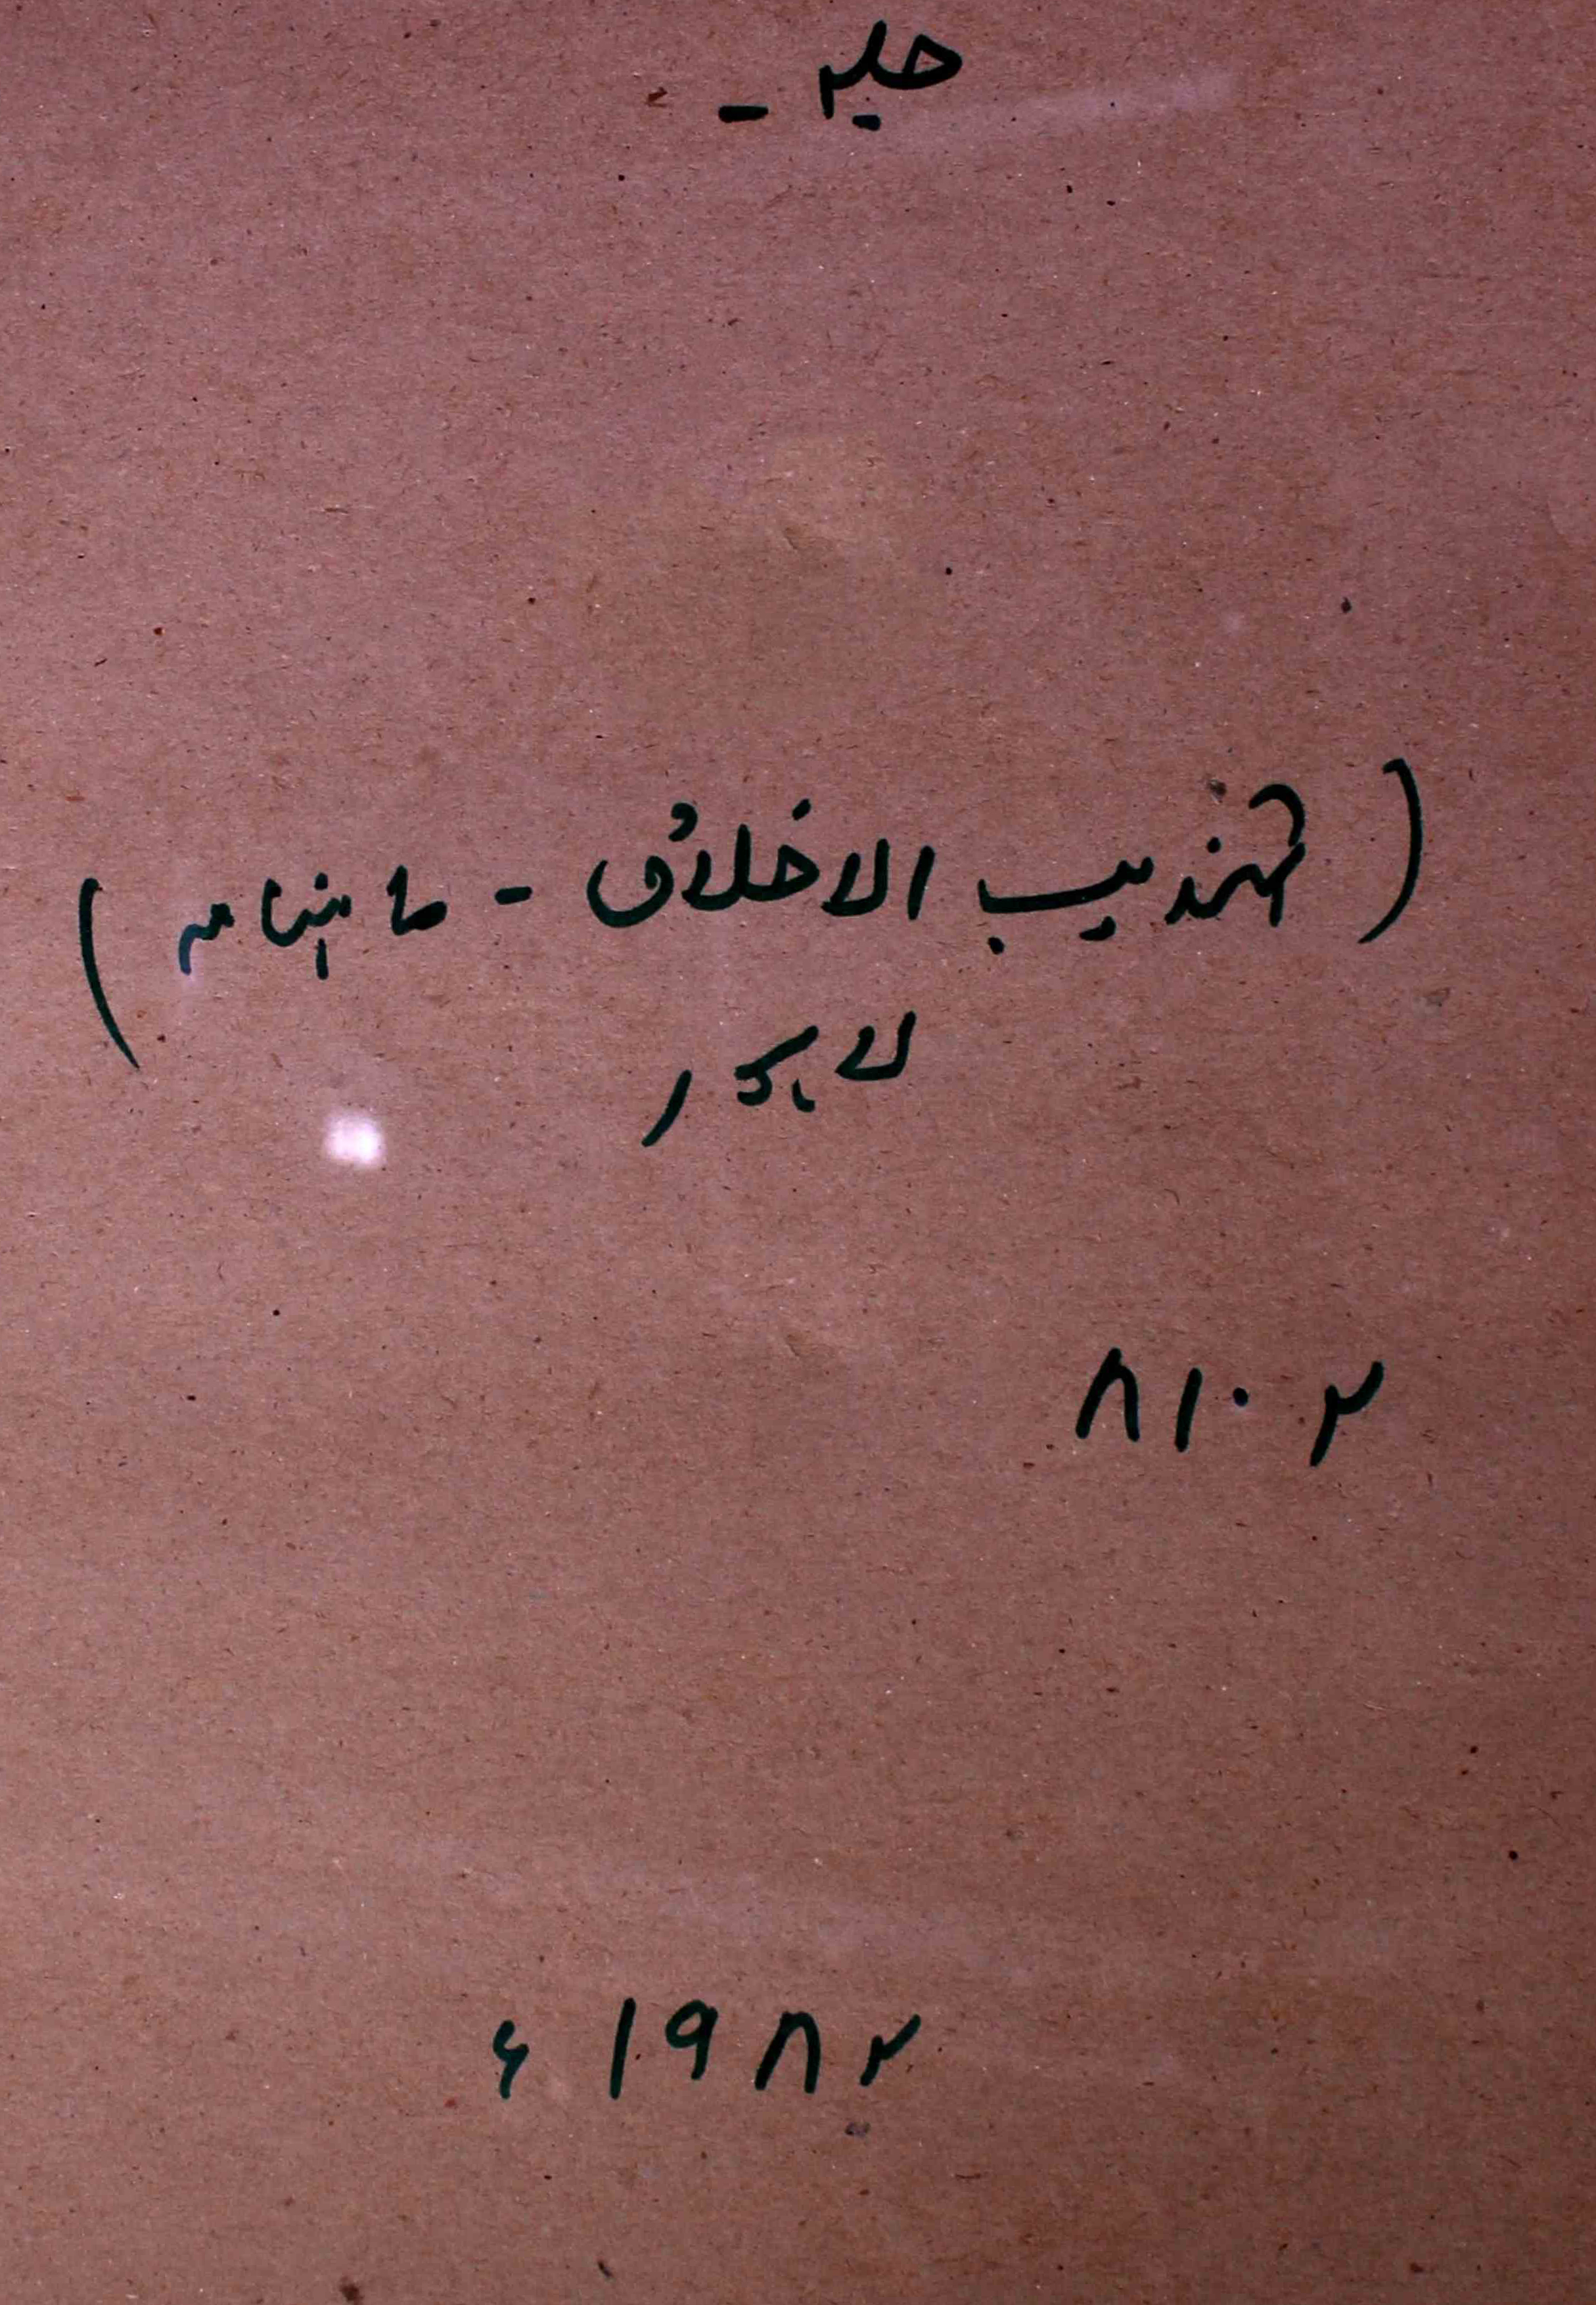 جلد -
( تہذیب الاخلاق - ماہنامہ )
لاہور
۸۱۰۲
۱۹۸۲ء